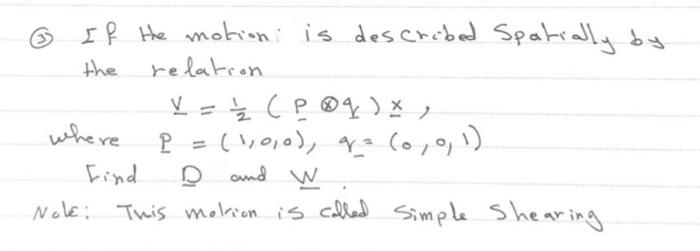 ③ If the motion: is described Spatially by
the relation
v = 1/2 (p ⊗ q) x ,
where p = (1,0,0), q = (0,0,1)
Find D and W.
Note: This motion is called Simple Shearing